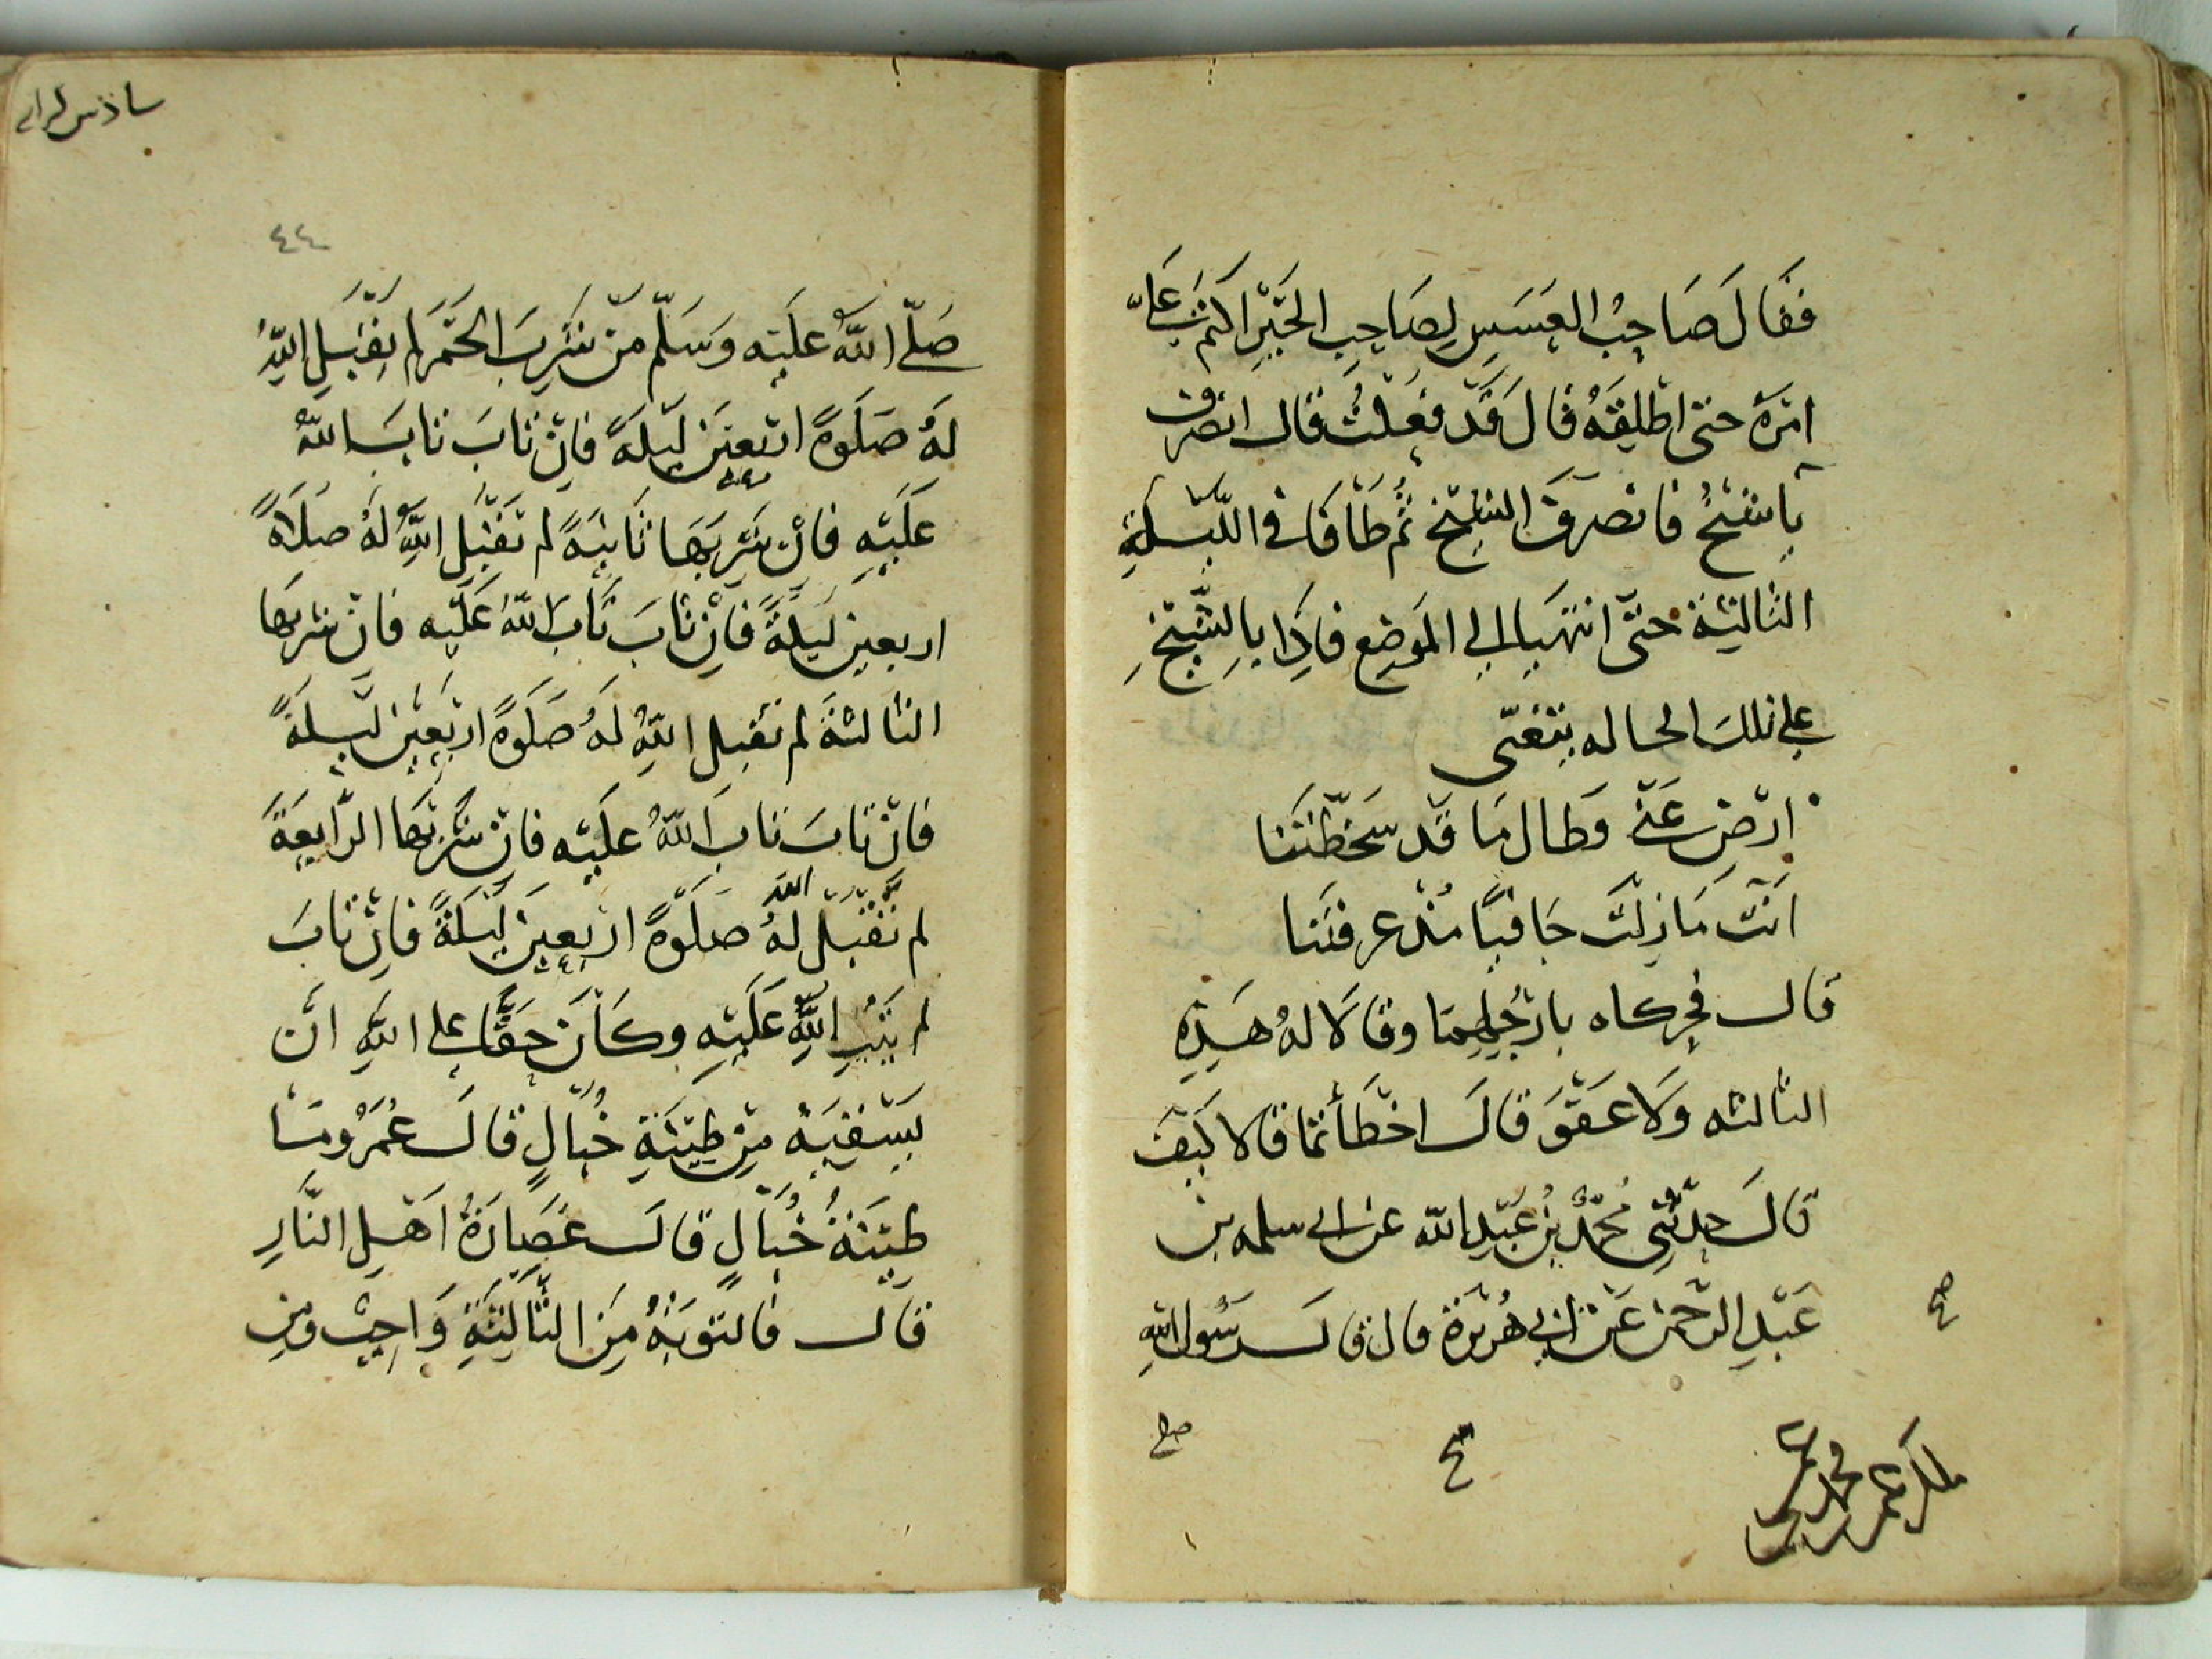 فقَالَ صَاحِبُ العَسَسِ لِصَاحِبِ الخَبَرِ اكتم عَلَيَّ
امْرَهُ حتى اطْلِقَهُ قالَ قَدْ فعَلْتُ قال انصرف
يا شَيْخُ فانْصرَفَ الشيْخ ثُمَّ طَافَا في اللّيْلةِ
الثالثة حتَّى انتهَيا الى المَوضِع فاذَا بالشَّيْخِ
على تلكَ الحاله يتغنّى
ارْضَ عَنّى وَطال مَا قَد سخطْتَنا
انْتَ مَا زلْتَ جَافيًا مُنْذ عرفتَنا
قال فحركاه بارْجُلِهِمَا وقالا لهُ هَذِهِ
الثالثه وَلا عَفْوَ قالَ اخْطَأتما قالا كَيفَ
قالَ حدثنِي مُحمَّدُ بْنُ عَبْدِ الله عن ابى سلمه بن
عَبْدِ الرّحْمنِ عَنْ ابي هُرَيْرَةَ قال قالَ رَسُولُ اللهِ
صح
ح
٤٤
صَلّى اللهُ عليْه وَسَلّم مَنْ شَرِبَ الخَمْرَ لم يقْبَلِ اللهُ
لهُ صَلَوةً ارْبعينَ ليْلةً فانْ تابَ تابَ اللهُ
عَلَيْهِ فانْ شَرِبَهَا ثَانيَةً لم يَقْبَلِ اللهُ لهُ صَلاةً
اربعين لَيْلةً فَانْ تابَ تَابَ اللهُ عَلَيْه فانْ شربهَا
الثالثةَ لم يقبل اللهُ لهُ صَلَوةً ارْبَعيْنَ ليْلَةً
فانْ تابَ تابَ اللهُ عليْه فانْ شَرِبَهَا الرَّابعَةَ
لم يَقْبَلِ الله لهُ صَلَوةً ارْبعينَ لَيْلَةً فانْ تابَ
لم يَتُبِ اللهُ عَلَيْهِ وكَانَ حَقًّا على اللهِ انْ
يَسْقِيَهُ مِنْ طِيْنَةِ خَبَالٍ قالَ عُمَرُ ومَا
طِيْنَةُ خَبَالٍ قالَ عُصَارَةُ اَهْلِ النَّارِ
قال فالتوبَةُ مِنَ الثَّالثَةِ وَاجِبَةٌ ومِن